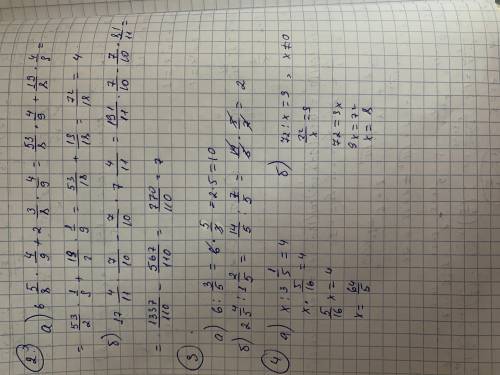 2.3
а) 6 5/8 · 4/9 + 2 3/8 · 4/9 = 53/8 · 4/9 + 19/8 · 4/9 =
= 53/2 · 1/9 + 19/2 · 1/9 = 53/18 + 19/18 = 72/18 = 4
б) 17 4/11 · 7/10 - 7/10 · 7 4/11 = 191/11 · 7/10 - 7/10 · 81/11 =
= 1337/110 - 567/110 = 770/110 = 7
3
а) 6 : 3/5 = 6 · 5/3 = 2·5 = 10
б) 2 4/5 : 1 2/5 = 14/5 : 7/5 = 14/5 · 5/7 = 2
4
а) x : 3 1/5 = 4
x · 5/16 = 4
5/16 x = 4
x = 64/5
б) 72 : x = 9 , x ≠ 0
72/x = 9
72 = 9x
9x = 72
x = 8